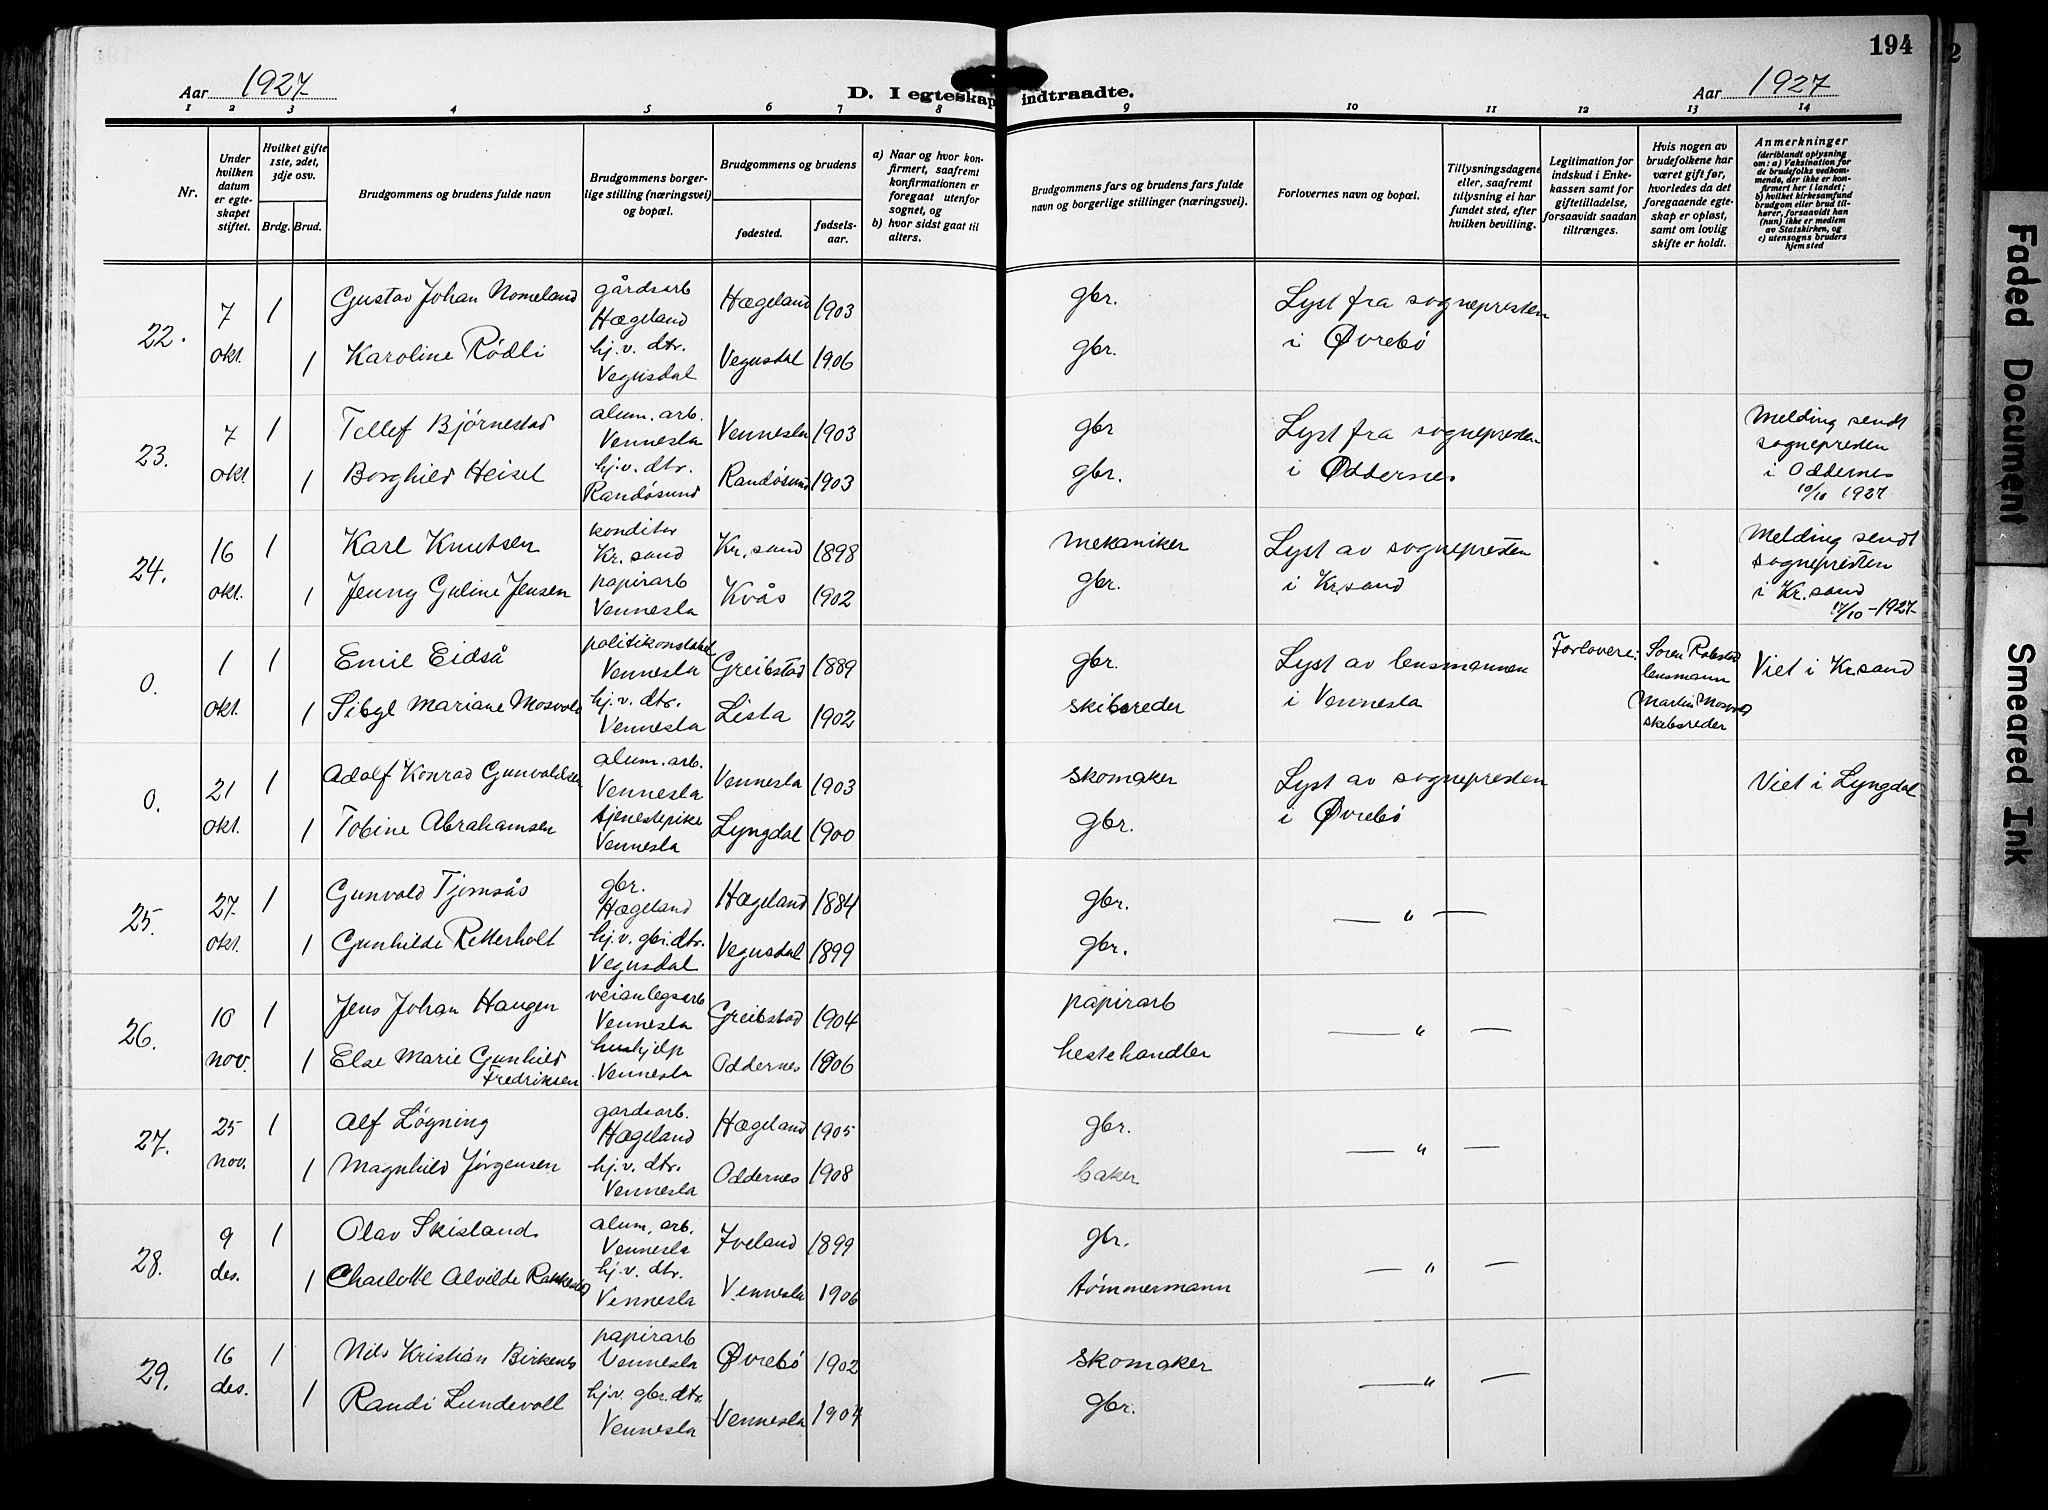 194
Aar 1927
D. I egteskap indtraadte.
Aar 1927
1 2 3 4 5 6 7 8 9 10 11 12 13 14
Nr.
Under hvilken datum er egteskapet stiftet.
Hvilket gifte 1ste, 2det, 3dje osv.
Brdg. Brud.
Brudgommens og brudens fulde navn
Brudgommens borgerlige stilling (næringsvei) og bopæl.
Brudgommens og brudens
fødested. fødselsaar.
a) Naar og hvor konfirmert, saafremt konfirmationen er foregaat utenfor sognet, og
b) hvor sidst gaat til alters.
Brudgommens fars og brudens fars fulde navn og borgerlige stillinger (næringsvei).
Forlovernes navn og bopæl.
Tillysningsdagene eller, saafremt tillysning ei har fundet sted, efter hvilken bevilling.
Legitimation for indskud i Enkekassen samt for giftetilladelse, forsaavidt saadan tiltrænges.
Hvis nogen av brudefolkene har været gift før, hvorledes da det foregaaende egteskap er opløst, samt om lovlig skifte er holdt.
Anmerkninger
(deriblandt oplysning om: a) Vaksination for de brudefolks vedkommende, der ikke er konfirmert her i landet; b) hvilket kirkesamfund brudgom eller brud tilhører, forsaavidt han (hun) ikke er medlem av Statskirken, og c) utensogns bruders hjemsted
22. 7 okt. 1 Gustav Johan Nomeland gårdsarb Hægeland Hægeland 1903 gbr. Lyst fra sognepresten i Øvrebö
1 Karoline Rödli hj.v. dtr. Vegusdal Vegusdal 1906 gbr.
23. 7 okt 1 Tellef Bjørnestad alum. arb. Vennesla Vennesla 1903 gbr Lyst fra sognepresten i Oddernes. Melding sendt sognepresten i Oddernes 10/10 1927.
1 Borghild Heisel hj.v. dtr. Randösund Randösund 1903 gbr.
24. 16 okt. 1 Karl Knutsen konditor Kr. sand Kr. sand 1898 mekaniker Lyst av sognepresten i Kr.sand Melding sendt sognepresten i Kr. sand 17/10 - 1927-
1 Jenny Guline Jensen papirarb Vennesla Kvås 1902 gbr.
0. 1 okt. 1 Emil Eidså politikonstabel Vennesla Greibstad 1889 gbr. Lyst av lensmannen i Vennesla Forlovere: Søren Robstad lensmann Martin Mosvold skibsreder Viet i Kr.sand
1 Sibyl Mariane Mosvold hj.v. dtr. Vennesla Lista 1902 skibsreder
0. 21 okt. 1 Adolf Konrad Gunvaldsen alum. arb. Vennesla Vennesla 1903 skomaker Lyst av sognepresten i Øvrebö Viet i Lyngdal
1 Tobine Abrahamsen tjenestepike Vennesla Lyngdal 1900 gbr.
25. 27 okt. 1 Gunvald Tjomsås gbr. Hægeland Hægeland 1884 gbr. — " —
1 Gunhilde Retterholt hj.v. gbr.dtr. Vegusdal Vegusdal 1899 gbr.
26. 10 nov. 1 Jens Johan Haugen veianlegsarb Vennesla Greibstad 1904 papirarb — " —
1 Else Marie Gunhild Fredriksen hushjelp Vennesla Oddernes 1906 hestehandler
27. 25 nov. 1 Alf Löyning gardsarb. Hægeland Hægeland 1905 gbr. — " —
1 Magnhild Jörgensen hj.v. dtr. Vennesla Oddernes 1908 baker
28. 9 des. 1 Olav Skisland alum. arb. Vennesla Iveland 1899 gbr. — " —
1 Charlotte Alvilde hj.v. dtr. Vennesla Vennesla 1906 tömmermann
29. 16 des. 1 Nils Kristian Birkenes papirarb Vennesla Øvrebö 1902 skomaker — " —
1 Randi Lundevoll hj.v. gbr.dtr. Vennesla Vennesla 1904 gbr.
Faded Document
Smeared Ink
2